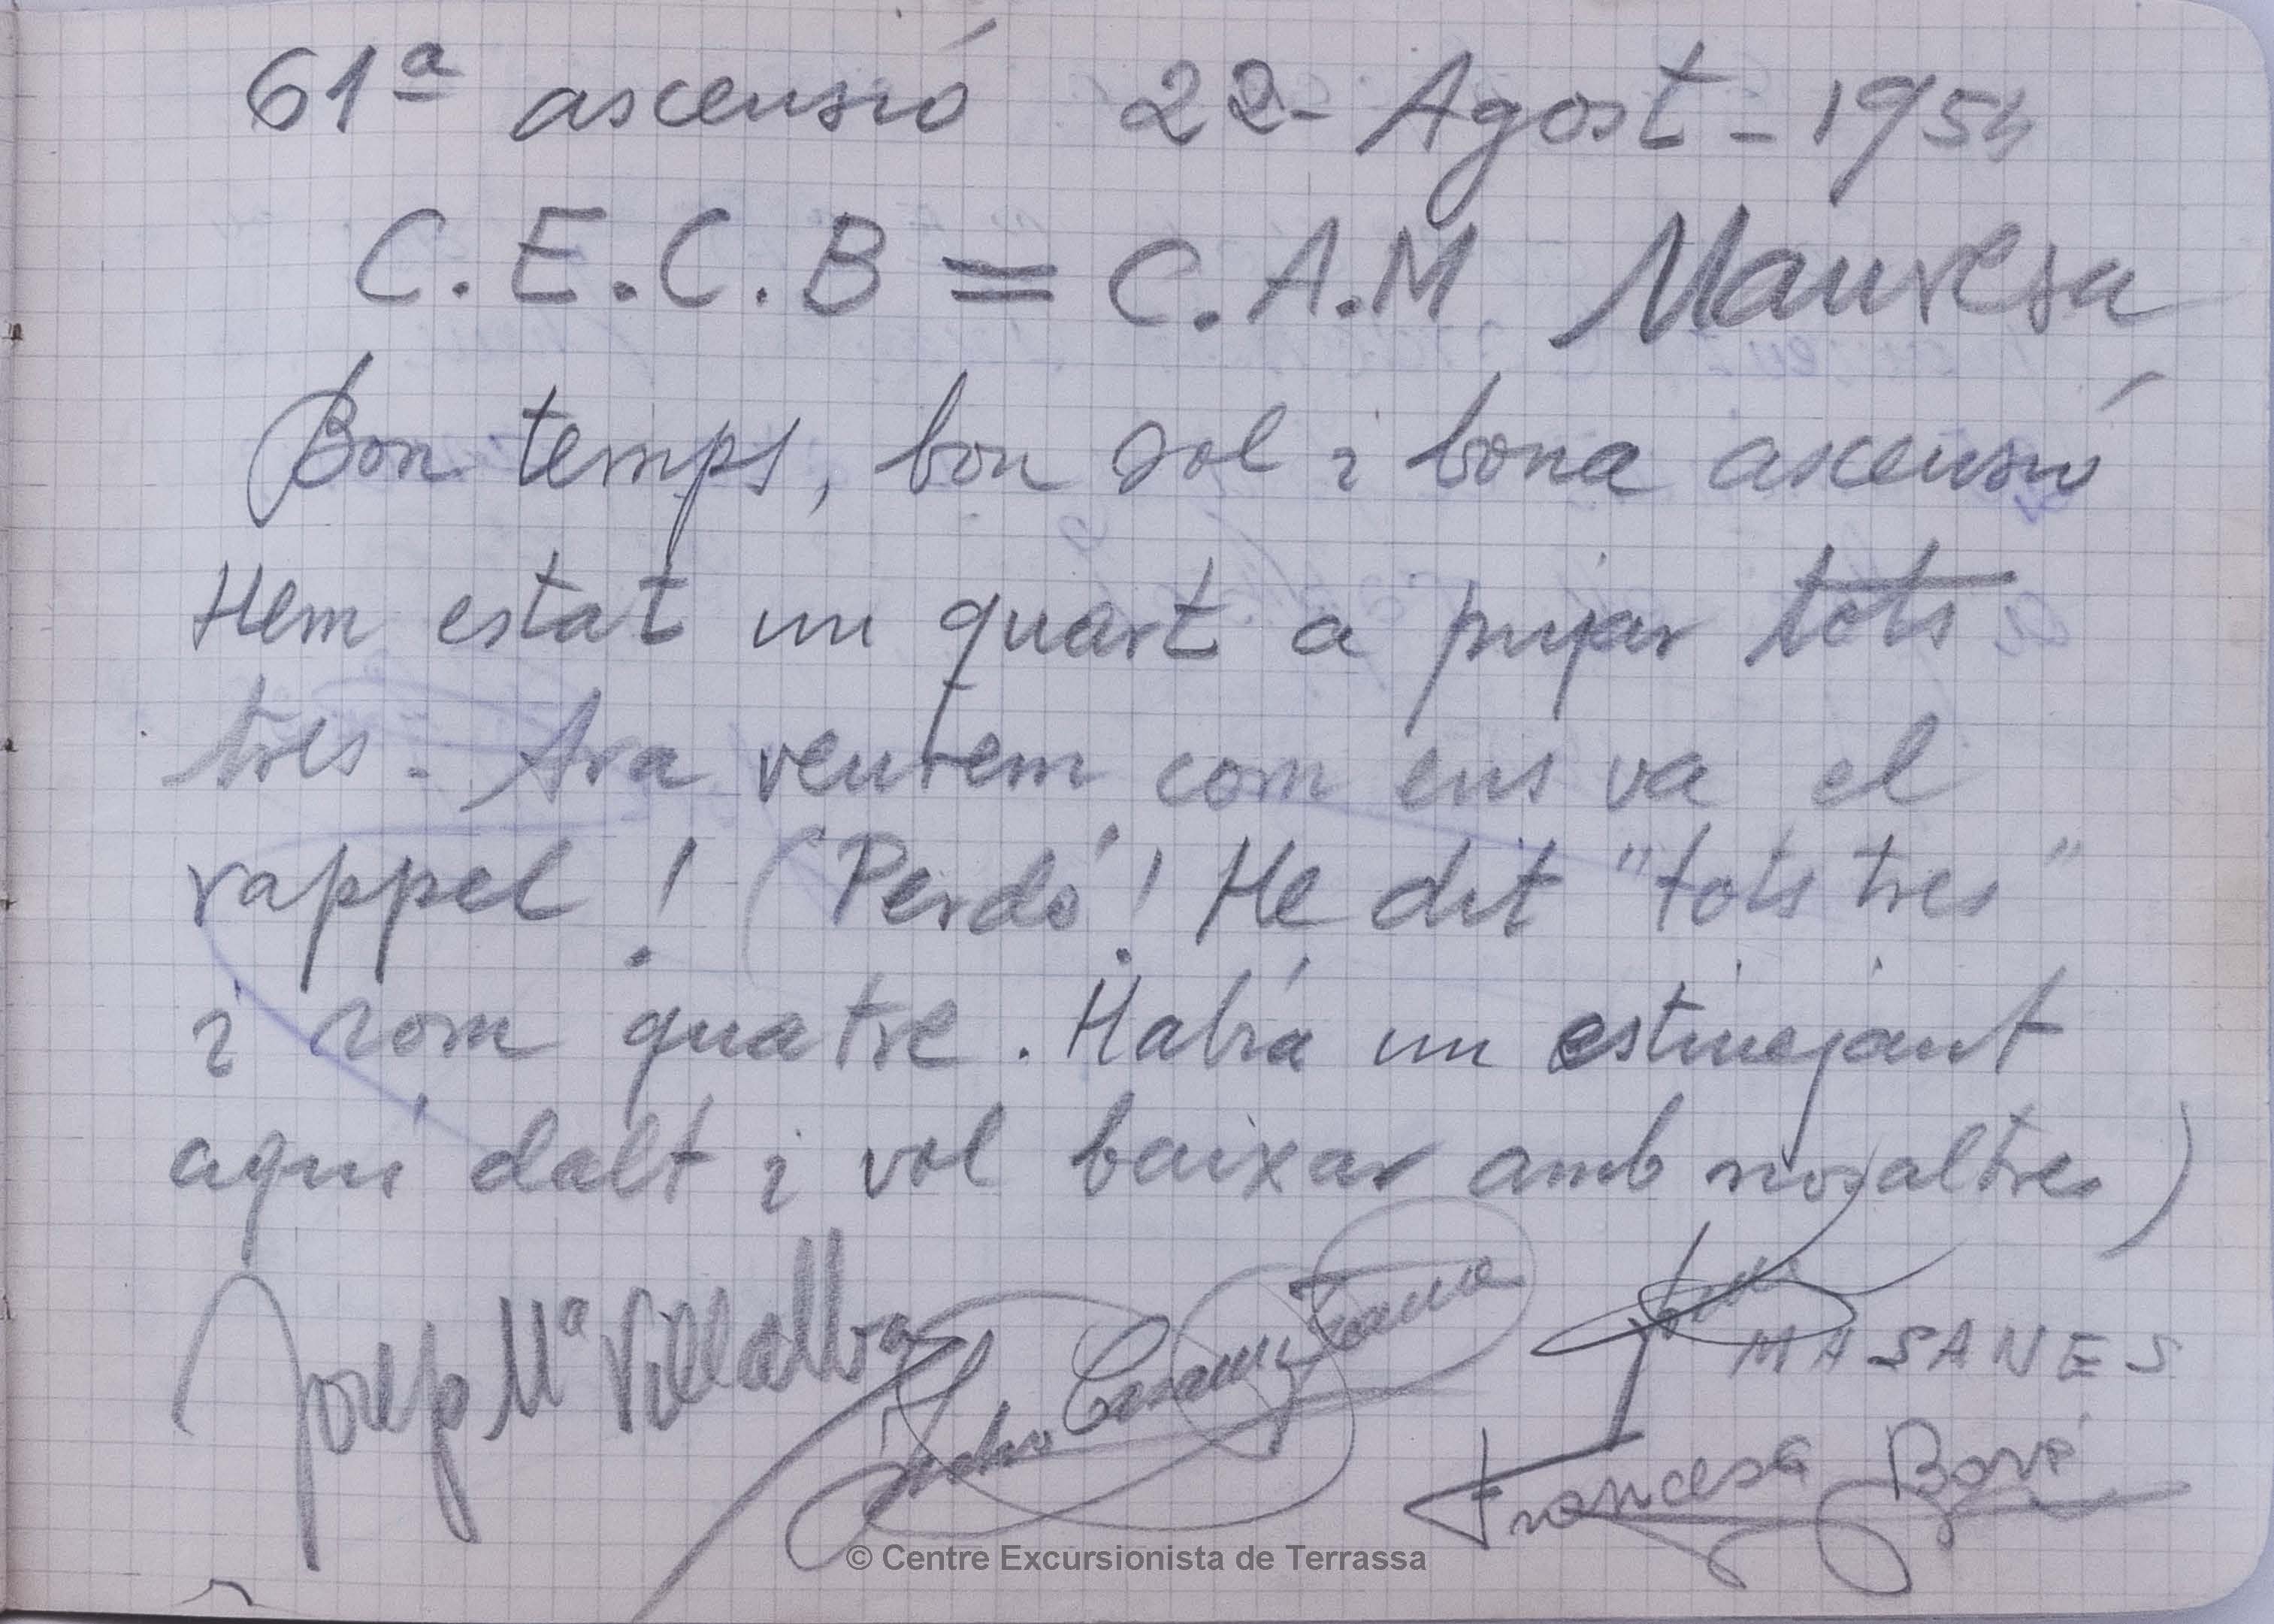 61ª ascensió 22- Agost - 1954
C.E.C.B = C.A.M Manresa
Bon temps, bon sol i bona ascensió
Hem estat un quart a pujar tots
tres. Ara veurem com ens va el
rappel! (Perdó! He dit "tots tres"
i som quatre. Había un estinejant
aquí dalt i vol baixar amb nosaltres)
Josep Mª Villalba
Casamitjana
MASANES
Francesca Boré
© Centre Excursionista de Terrassa